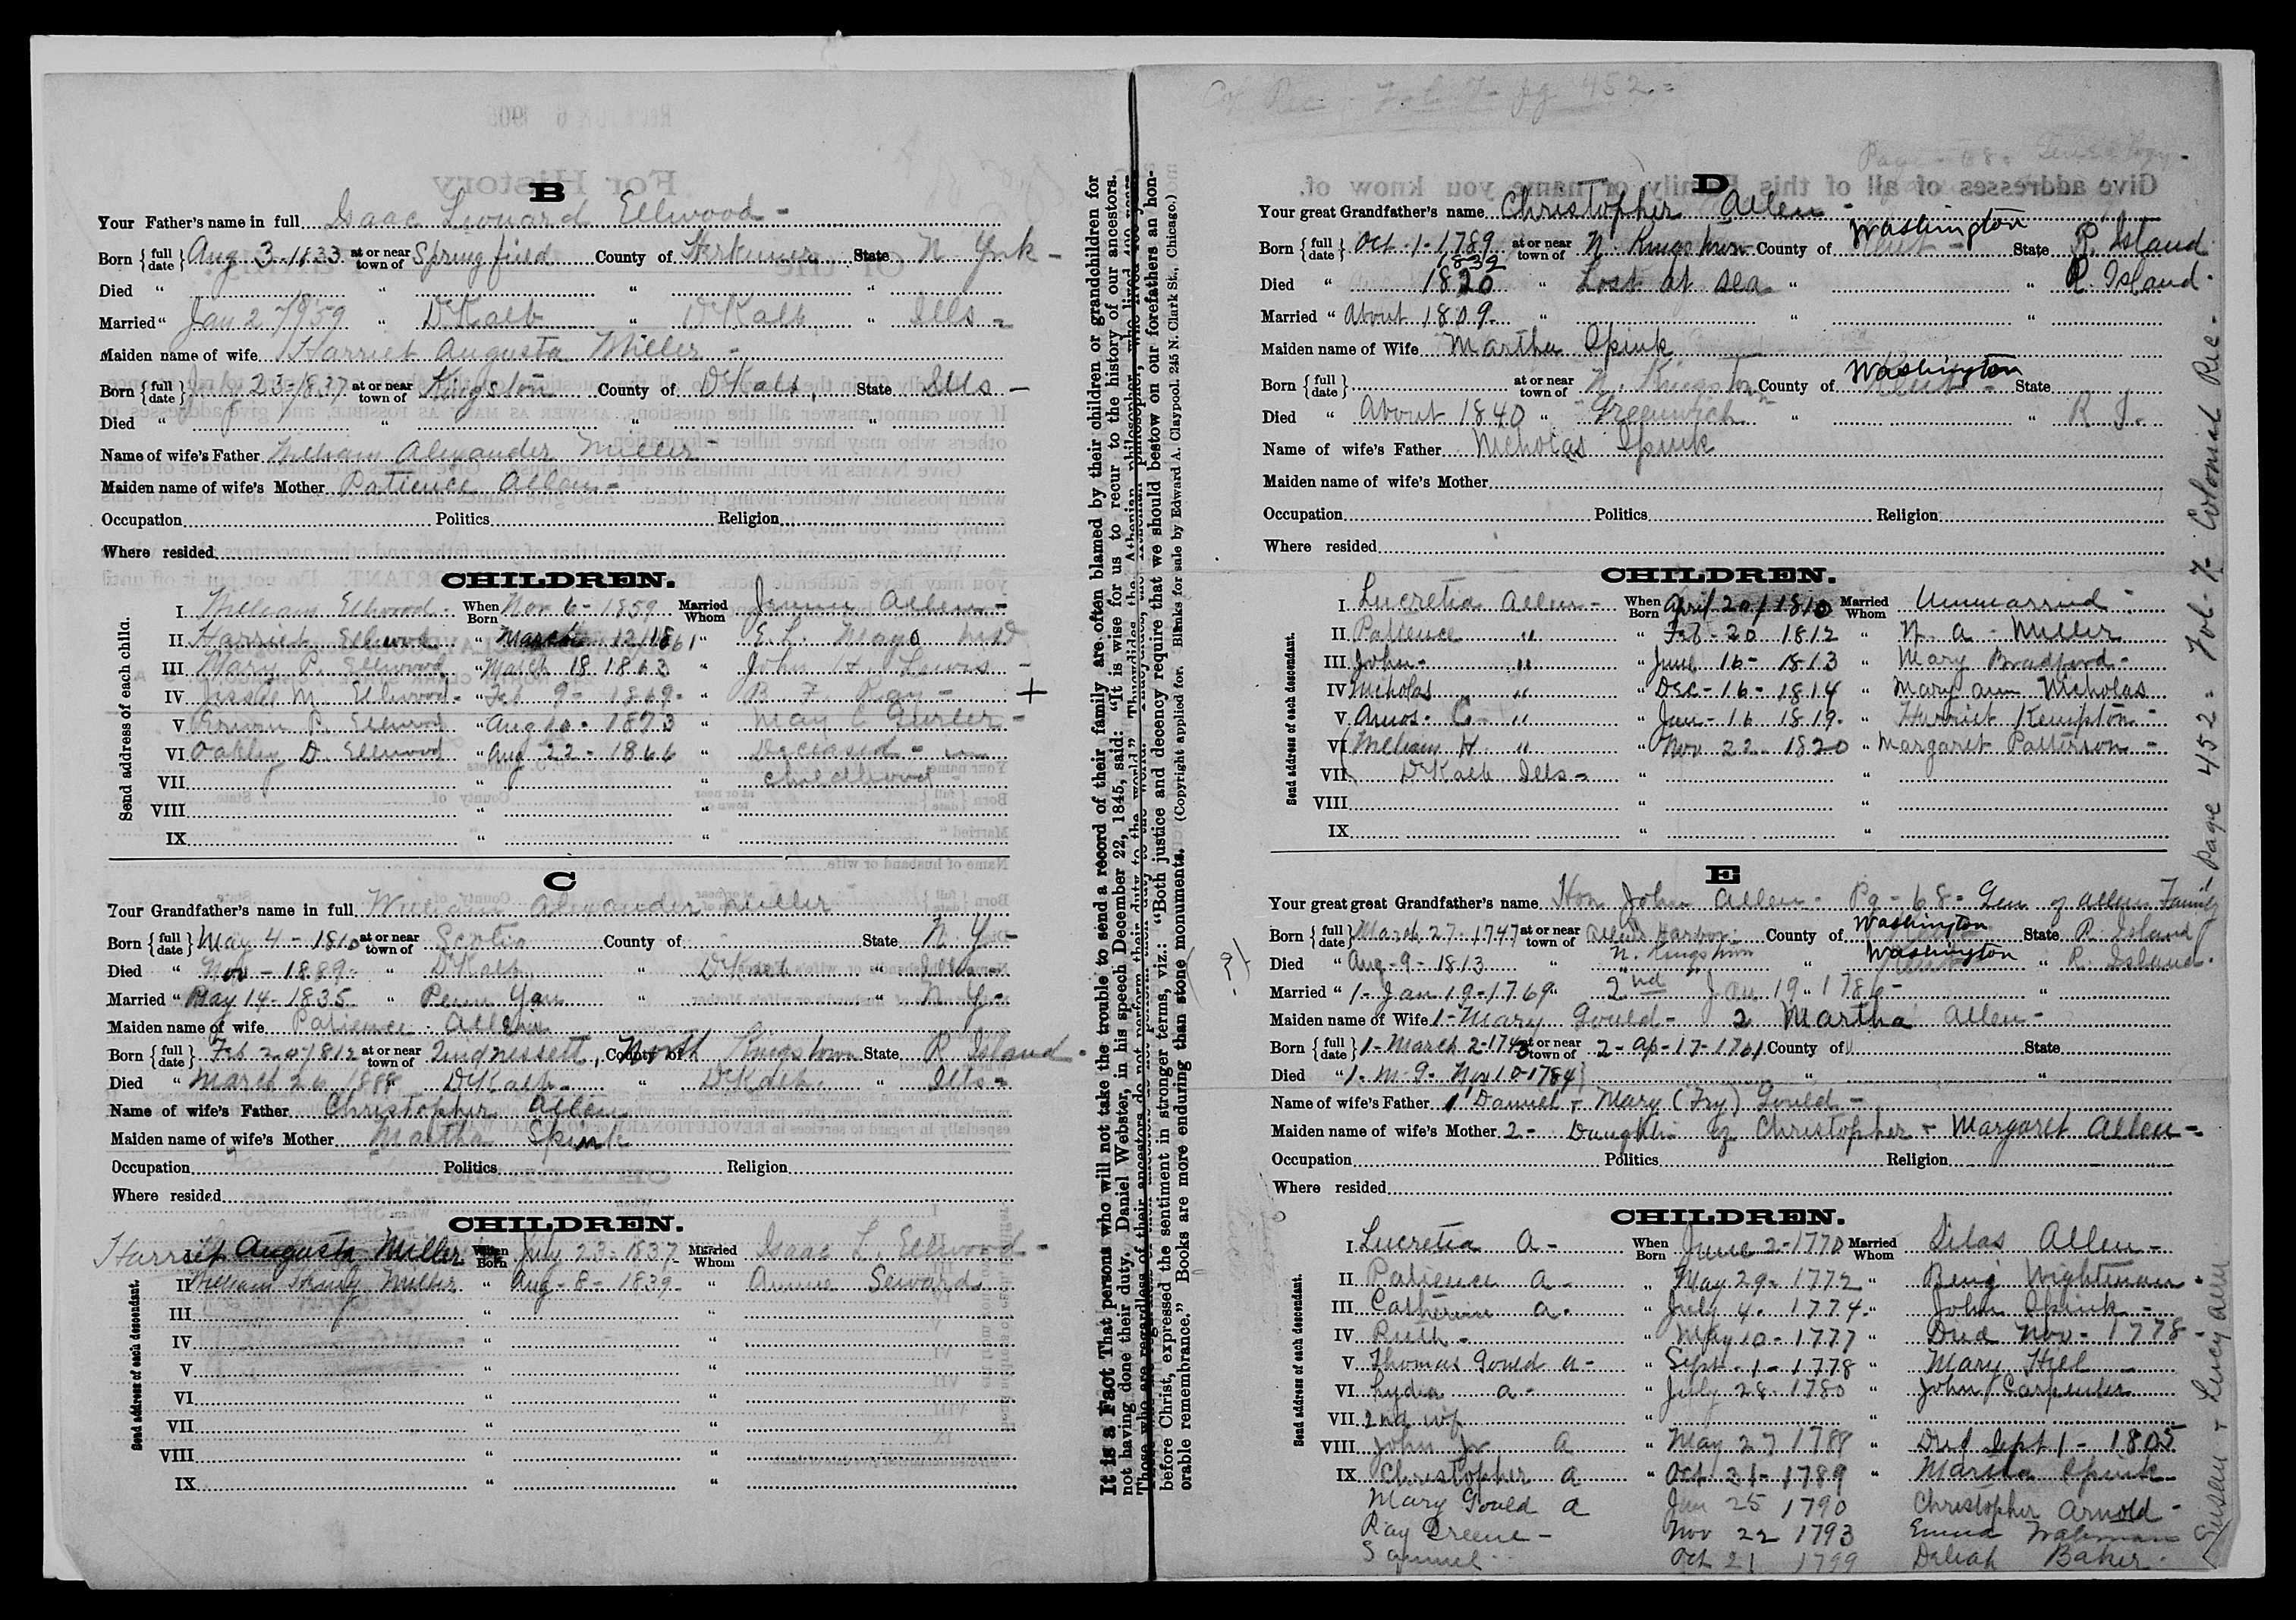 B
Your Father's name in full Isaac Leonard Ellwood -
Born { full date } Aug 3-1833 at or near town of Springfield County of Herkimer State N. York -
Died " " " "
Married " Jan 27 1959 " DeKalb " DeKalb " Ills -
Maiden name of wife Harriet Augusta Miller -
Born { full date } July 23-1837 at or near town of Kingston County of DeKalb, State Ills -
Died " " " "
Name of wife's Father William Alexander Miller -
Maiden name of wife's Mother Patience Allen -
Occupation Politics Religion
Where resided
CHILDREN.
Send address of each child.
I William Ellwood. When Born Nov 6 - 1859 Married Whom Jennie Allen -
II Harriet Ellwood " March 12 1861 " E. L. Mayo MD
III Mary P. Ellwood " March 18 1863 " John H. Lewis -
IV Jessie M. Ellwood - " Feb 9 - 1869 - " B. F. Ray - +
V Erwin P. Ellwood " Aug 10 - 1873 " May C Gurler -
VI Oakley D. Ellwood " Aug 22 - 1866 " Deceased - in
VII " " childhood
VIII " "
IX " "
C
Your Grandfather's name in full William Alexander Miller
Born { full date } May 4 - 1810 at or near town of Scotia County of State N. Y -
Died " Nov - 1889 - " DeKalb " DeKalb " Ills -
Married " May 14 - 1835 " Penn Yan " " N Y -
Maiden name of wife Patience Allen
Born { full date } Feb 20 1812 at or near town of Quidnessett, County of North Kingstown State R Island -
Died " March 26 1888 DeKalb - " DeKalb. " Ills -
Name of wife's Father Christopher Allen
Maiden name of wife's Mother Martha Spink
Occupation Politics Religion
Where resided
CHILDREN.
Send address of each descendant.
I Harriet Augusta Miller When Born July 23 - 1837 Married Whom Isaac L. Ellwood -
II William Miller " Aug - 8 - 1839 - " Annie Seward
III " "
IV " "
V " "
VI " "
VII " "
VIII " "
IX " "
It is a Fact That persons who will not take the trouble to send a record of their family are often blamed by their children or grandchildren for
not having done their duty. Daniel Webster, in his speech December 22, 1845, said: "It is wise for us to recur to the history of our ancestors.
Those who are regardless of their ancestors do not perform their duty to the world." Thucydides, the Athenian philosopher, who lived 400 years
before Christ, expressed the sentiment in stronger terms, viz.: "Both justice and decency require that we should bestow on our forefathers an hon-
orable remembrance." Books are more enduring than stone monuments. (Copyright applied for. Blanks for sale by Edward A. Claypool, 245 N. Clark St., Chicago.)
Col Rec - Vol 7 - pg 452. =
Page - 68. Genealogy -
D
Your great Grandfather's name Christopher Allen -
Born { full date } Oct. 1 - 1789 at or near town of N. Kingstown County of Washington State R. Island
Died " 1820 1832 " Lost at sea " " R. Island.
Married " About 1809 - " " "
Maiden name of Wife Martha Spink
Born { full date } at or near town of N. Kingston County of Washington State
Died " About 1840 " Greenwich " " R I.
Name of wife's Father Nicholas Spink
Maiden name of wife's Mother
Occupation Politics Religion
Where resided
CHILDREN.
Send address of each descendant.
I Lucretia Allen - When Born April 20 / 1810 Married Whom Unmarried -
II Patience " " Feb - 20 1812 " W. A. Miller
III John - " " June 16 - 1813 " Mary Bradford -
IV Nicholas " " Dec - 16 - 1814 " Mary Ann Nicholas
V Amos - C - " " Jan - 16 1819 - " Harriet Kempton -
VI William H. " " Nov 22 1820 " Margaret Patterson -
VII DeKalb Ills - " "
VIII " "
IX " "
E
Your great great Grandfather's name Hon John Allen - Pg - 68 - Gen of Allen Family - Page 452 = Vol - 7 - Colonial Rec -
Born { full date } March 27 - 1747 at or near town of Allens Harbor County of Washington State R. Island
Died " Aug - 9 - 1813 " N. Kingstown Washington " R. Island.
Married " 1 - Jan 19 - 1769 " 2nd Jan 19 " 1786 - "
Maiden name of Wife 1 - Mary Gould - 2 Martha Allen -
Born { full date } 1 - March 2 - 1743 at or near town of 2 - Ap - 17 - 1761 County of State
Died " 1 - M. G. Nov 10 - 1784 " "
Name of wife's Father 1 Daniel + Mary (Fry) Gould -
Maiden name of wife's Mother 2 - Daughter of Christopher + Margaret Allen -
Occupation Politics Religion
Where resided
?
CHILDREN.
Send address of each descendant.
I Lucretia A - When Born June 2 - 1770 Married Whom Silas Allen -
II Patience A - " May 29 - 1772 " Benj Wightman -
III Catherine A. " July 4. 1774 " John Spink -
IV Ruth - " May 10 - 1777 " Died Nov - 1778 -
V Thomas Gould A - " Sept. 1 - 1778 " Mary Hiel
VI Lydia A - " July 28 - 1780 " John Carpenter
VII 2nd wif " "
VIII John Jr A " May 27 1788 " Died Sept 1 - 1805
IX Christopher A " Oct 31 - 1789 " Martha Spink
Mary Gould A Jan 25 1790 Christopher Arnold -
Ray Greene - Nov 22 1793 Emma
Samuel Oct 21 1799 Deliah Baker.
Susan + Lucy Allen